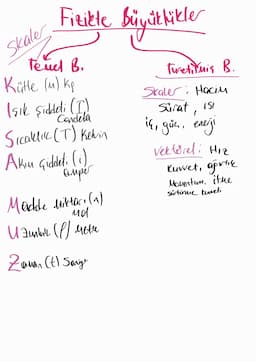 Fizikte Büyüklükler
Skaler
Temel B.
Kütle (m) Kg
Işık Şiddeti (I)
Candela
Sıcaklık (T) Kelvin
Akım Şiddeti (i)
amper
Madde Miktarı (n)
Mol
Uzunluk (l) Metre
Zaman (t) Saniye
Türetilmiş B.
Skaler: Hacim
Sürat, ısı
iş, güç, enerji
Vektörel: Hız
Kuvvet, ağırlık
Momentum, itme
sürtünme kuvveti